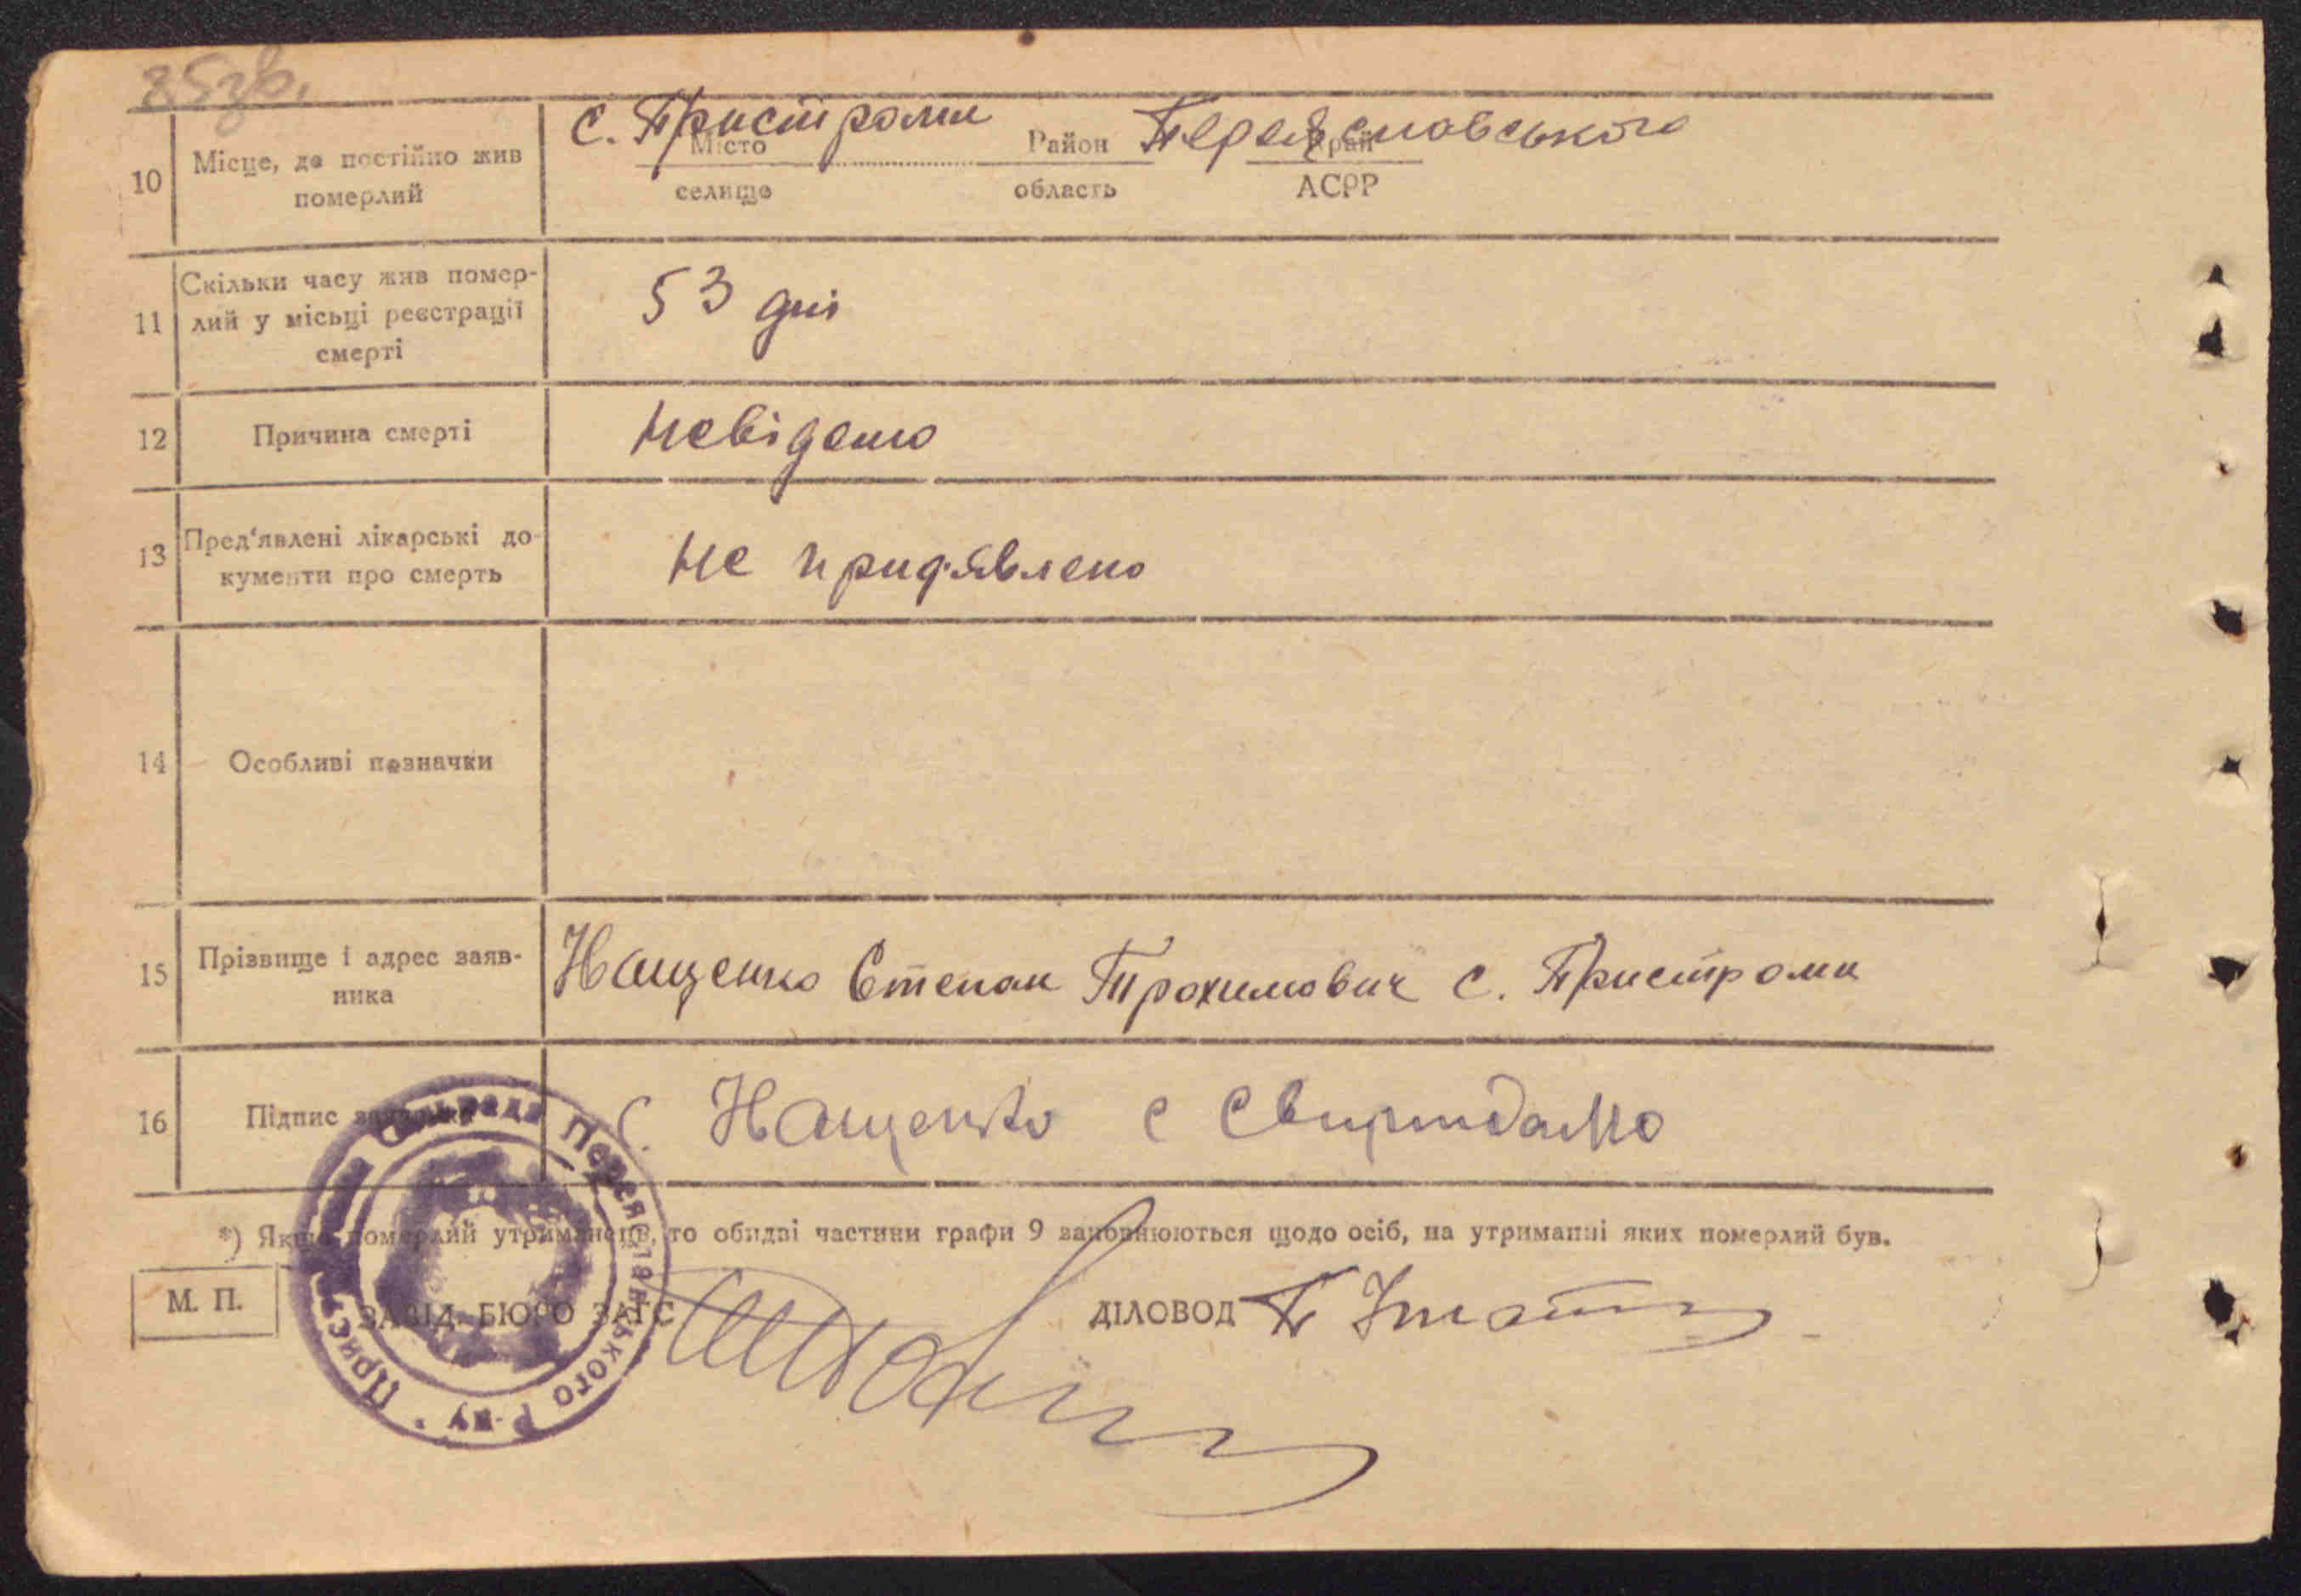 85зв.
с. Пристроми Район Переяславського
Місто Край
селище область АСРР
10 Місце, де постійно жив
померлий
Скільки часу жив помер-
11 лий у місьці реєстрації
смерті
53 дні
12 Причина смерті невідомо
13 Пред'явлені лікарські до-
кументи про смерть
не придявлено
14 Особливі позначки
15 Прізвище і адрес заяв-
ника
Нащенко Степан Трохимович с. Пристроми
16 Підпис заявника С. Нащенко с
*) Якщо померлий утриманець, то обидві частини графи 9 заповнюються щодо осіб, на утриманні яких померлий був.
М. П. ЗАВІД. БЮРО ЗАГС ДІЛОВОД
Сільради Переяславського Р-ну